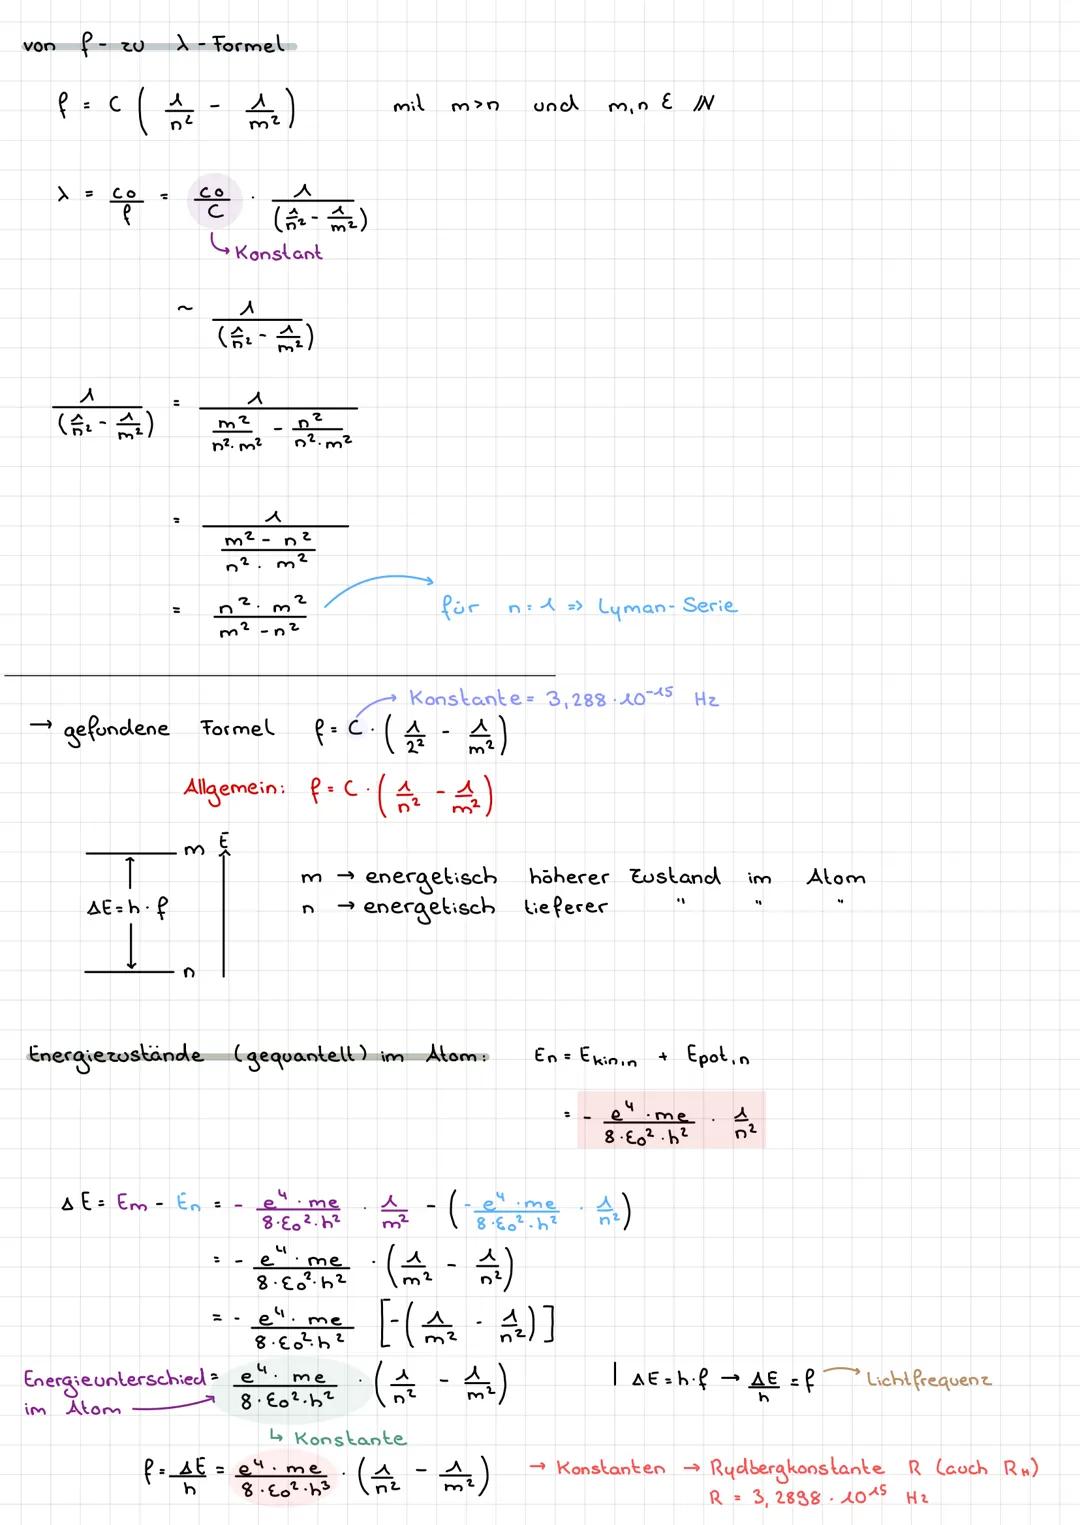 von f- zu λ-Formel
f = C ( 1/n² - 1/m² ) mit m>n und m,n ε ℕ
λ = c0/f = c0/C · 1/(1/n² - 1/m²)
↳ Konstant
~ 1/(1/n² - 1/m²)
1/(1/n² - 1/m²) = 1/(m²/(n²·m²) - n²/(n²·m²))
= 1/((m² - n²)/(n² · m²))
= (n² · m²)/(m² - n²) → für n=1 => Lyman-Serie
→ Konstante = 3,288·10⁻¹⁵ Hz
→ gefundene Formel f = C · ( 1/2² - 1/m² )
Allgemein: f = C · ( 1/n² - 1/m² )
m E
m → energetisch höherer Zustand im Atom
ΔE = h · f n → energetisch tieferer " " "
n
Energiezustände (gequantelt) im Atom: En = Ekin,n + Epot,n
= - (e⁴ · me)/(8·ε0²·h²) · 1/n²
ΔE = Em - En = - (e⁴ · me)/(8·ε0²·h²) · 1/m² - (- (e⁴ · me)/(8·ε0²·h²) · 1/n²)
= - (e⁴ · me)/(8·ε0²·h²) · ( 1/m² - 1/n² )
= - (e⁴ · me)/(8·ε0²·h²) [-( 1/m² - 1/n² )]
Energieunterschied = (e⁴ · me)/(8·ε0²·h²) · ( 1/n² - 1/m² ) | ΔE = h·f → ΔE/h = f → Lichtfrequenz
im Atom
↳ Konstante
f = ΔE/h = (e⁴ · me)/(8·ε0²·h³) · ( 1/n² - 1/m² ) → Konstanten → Rydbergkonstante R (auch RH)
R = 3,2898 · 10¹⁵ Hz